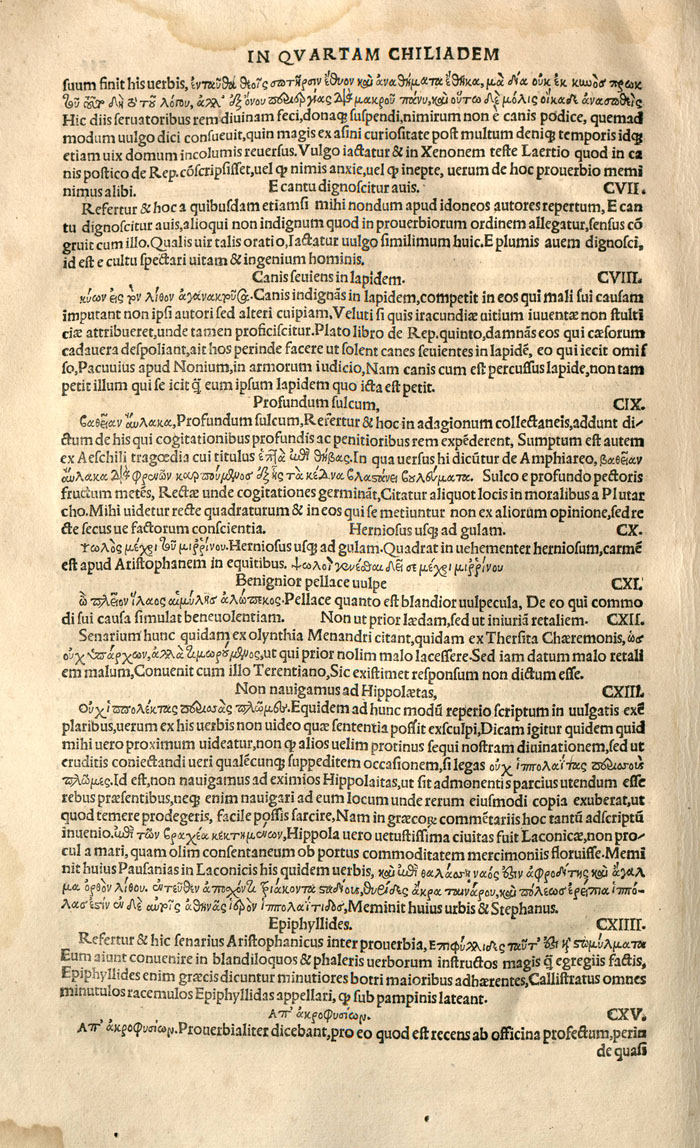 IN QVARTAM CHILIADEM
suum finit his uerbis,
Hic diis seruatoribus rem diuinam feci, donaq; suspendi, nimirum non è canis podice, quemad
modum uulgo dici consueuit, quin magis ex asini curiositate post multum deniq; temporis idq;
etiam uix domum incolumis reuersus. Vulgo iactatur & in Xenonem teste Laertio quod in ca
nis postico de Rep. cōscripsisset, uel q̃ nimis anxie, uel q̃ inepte, uerum de hoc prouerbio memi
nimus alibi. E cantu dignoscitur auis. CVII.
Refertur & hoc a quibusdam etiamsi mihi nondum apud idoneos autores repertum, E can
tu dignoscitur auis, alioqui non indignum quod in prouerbiorum ordinem allegatur, sensus cō
gruit cum illo. Qualis uir talis oratio, Iactatur uulgo simillimum huic. E plumis auem dignosci,
id est e cultu spectari uitam & ingenium hominis.
Canis seuiens in lapidem. CVIII.
κύων εἰς τὸν λίθον ἀγανακτοῦσα. Canis indignās in lapidem, competit in eos qui mali sui causam
imputant non ipsi autori sed alteri cuipiam, Veluti si quis iracundiæ uitium iuuentæ non stulti
ciæ attribueret, unde tamen proficiscitur. Plato libro de Rep. quinto, damnās eos qui cæsorum
cadauera despoliant, ait hos perinde facere ut solent canes seuientes in lapidē, eo qui iecit omis
so, Pacuuius apud Nonium, in armorum iudicio, Nam canis cum est percussus lapide, non tam
petit illum qui se icit q̃ eum ipsum lapidem quo icta est petit.
Profundum sulcum, CIX.
βαθεῖαν αὔλακα, Profundum sulcum, Refertur & hoc in adagionum collectaneis, addunt di-
ctum de his qui cogitationibus profundis ac penitioribus rem expēderent, Sumptum est autem
ex Aeschili tragœdia cui titulus ἑπτὰ ἐπὶ θήβας. In qua uersus hi dicūtur de Amphiareo, βαθεῖαν
αὔλακα διὰ φρενῶν καρπούμενος ἐξ ἧς τὰ κέδνα βλαστάνει βουλεύματα. Sulco e profundo pectoris
fructum metēs, Rectæ unde cogitationes germināt, Citatur aliquot locis in moralibus a Plutar
cho. Mihi uidetur recte quadraturum & in eos qui se metiuntur non ex aliorum opinione, sed re
cte secus ue factorum conscientia. Herniosus usq; ad gulam. CX.
ψωλὸς μέχρι τοῦ μυῤῥίνου. Herniosus usq; ad gulam. Quadrat in uehementer herniosum, carmē
est apud Aristophanem in equitibus. ψωλὸν γενέσθαι δεῖ σε μέχρι μυῤῥίνου
Benignior pellace uulpe CXI.
Pellace quanto est blandior uulpecula, De eo qui commo
di sui causa simulat beneuolentiam. Non ut prior lædam, sed ut iniuriā retaliem. CXII.
Senarium hunc quidam ex olynthia Menandri citant, quidam ex Thersita Chæremonis, ὡς
οὐχ ὑπάρχων, ἀλλὰ τιμωρούμενος, ut qui prior nolim malo lacessere. Sed iam datum malo retali
em malum, Conuenit cum illo Terentiano, Sic existimet responsum non dictum esse.
Non nauigamus ad Hippolætas, CXIII.
Equidem ad hunc modū reperio scriptum in uulgatis exē
plaribus, uerum ex his uerbis non uideo quæ sententia possit exsculpi, Dicam igitur quidem quid
mihi uero proximum uideatur, non q̃ alios uelim protinus sequi nostram diuinationem, sed ut
eruditis coniectandi ueri qualēcunq; suppeditem occasionem, si legas
Id est, non nauigamus ad eximios Hippolaitas, ut sit admonentis parcius utendum esse
rebus præsentibus, neq; enim nauigari ad eum locum unde rerum eiusmodi copia exuberat, ut
quod temere prodegeris, facile possis sarcire, Nam in græcorum commētariis hoc tantū adscriptū
inuenio. ἐπὶ τῶν βραχέα κεκτημένων, Hippola uero uetustissima ciuitas fuit Laconicæ, non pro-
cul a mari, quam olim consentaneum ob portus commoditatem mercimoniis floruisse. Memi
nit huius Pausanias in Laconicis his quidem uerbis,
Meminit huius urbis & Stephanus.
Epiphyllides. CXIIII.
Refertur & hic senarius Aristophanicus inter prouerbia, ἐπιφυλλίδες ταῦτ' ἐστὶ καὶ στωμύλματα
Eum aiunt conuenire in blandiloquos & phaleris uerborum instructos magis q̃ egregiis factis,
Epiphyllides enim græcis dicuntur minutiores botri maioribus adhærentes, Callistratus omnes
minutulos racemulos Epiphyllidas appellari, q̃ sub pampinis lateant.
Απ' ἀκροφυσίων. CXV.
Απ' ἀκροφυσίων. Prouerbialiter dicebant, pro eo quod est recens ab officina profectum, perin
de quasi